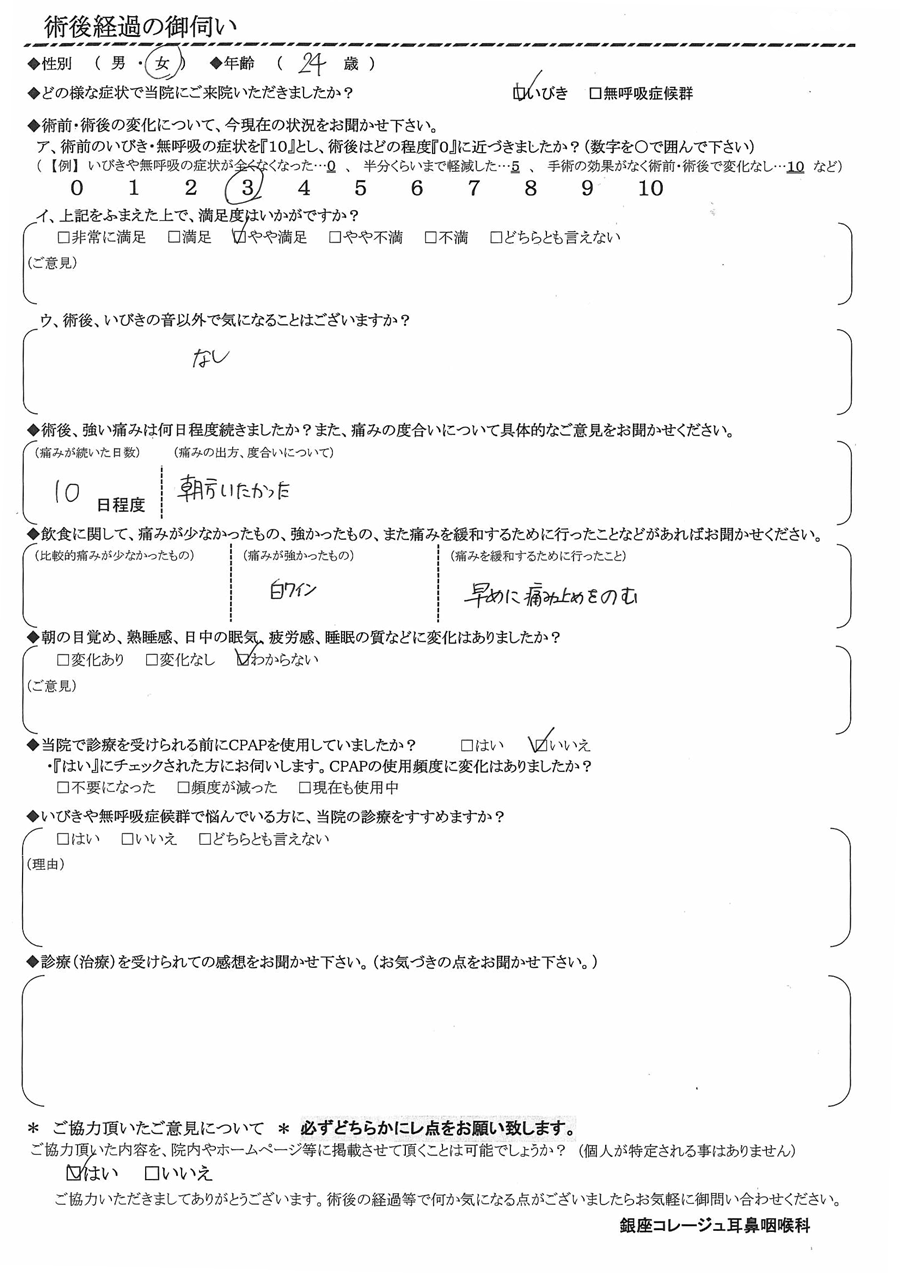 術後経過の御伺い
◆性別 （ 男 ・ 女 ） ◆年齢 （ 24 歳 ）
◆どの様な症状で当院にご来院いただきましたか？ ☑いびき □無呼吸症候群
◆術前・術後の変化について、今現在の状況をお聞かせ下さい。
ア、術前のいびき・無呼吸の症状を『10』とし、術後はどの程度『0』に近づきましたか？（数字を〇で囲んで下さい）
（ 【例】 いびきや無呼吸の症状が全くなくなった…0 、 半分くらいまで軽減した…5 、 手術の効果がなく術前・術後で変化なし…10 など）
0 1 2 3 4 5 6 7 8 9 10
イ、上記をふまえた上で、満足度はいかがですか？
□非常に満足 □満足 ☑やや満足 □やや不満 □不満 □どちらとも言えない
（ご意見）
ウ、術後、いびきの音以外で気になることはございますか？
なし
◆術後、強い痛みは何日程度続きましたか？また、痛みの度合いについて具体的なご意見をお聞かせください。
（痛みが続いた日数） （痛みの出方、度合いについて）
10 日程度 朝方いたかった
◆飲食に関して、痛みが少なかったもの、強かったもの、また痛みを緩和するために行ったことなどがあればお聞かせください。
（比較的痛みが少なかったもの） （痛みが強かったもの） （痛みを緩和するために行ったこと）
白ワイン 早めに痛み止めをのむ
◆朝の目覚め、熟睡感、日中の眠気、疲労感、睡眠の質などに変化はありましたか？
□変化あり □変化なし ☑わからない
（ご意見）
◆当院で診療を受けられる前にCPAPを使用していましたか？ □はい ☑いいえ
・『はい』にチェックされた方にお伺いします。CPAPの使用頻度に変化はありましたか？
□不要になった □頻度が減った □現在も使用中
◆いびきや無呼吸症候群で悩んでいる方に、当院の診療をすすめますか？
□はい □いいえ □どちらとも言えない
（理由）
◆診療（治療）を受けられての感想をお聞かせ下さい。（お気づきの点をお聞かせ下さい。）
＊ ご協力頂いたご意見について ＊ 必ずどちらかにレ点をお願い致します。
ご協力頂いた内容を、院内やホームページ等に掲載させて頂くことは可能でしょうか？ （個人が特定される事はありません）
☑はい □いいえ
ご協力いただきましてありがとうございます。術後の経過等で何か気になる点がございましたらお気軽に御問い合わせください。
銀座コレージュ耳鼻咽喉科